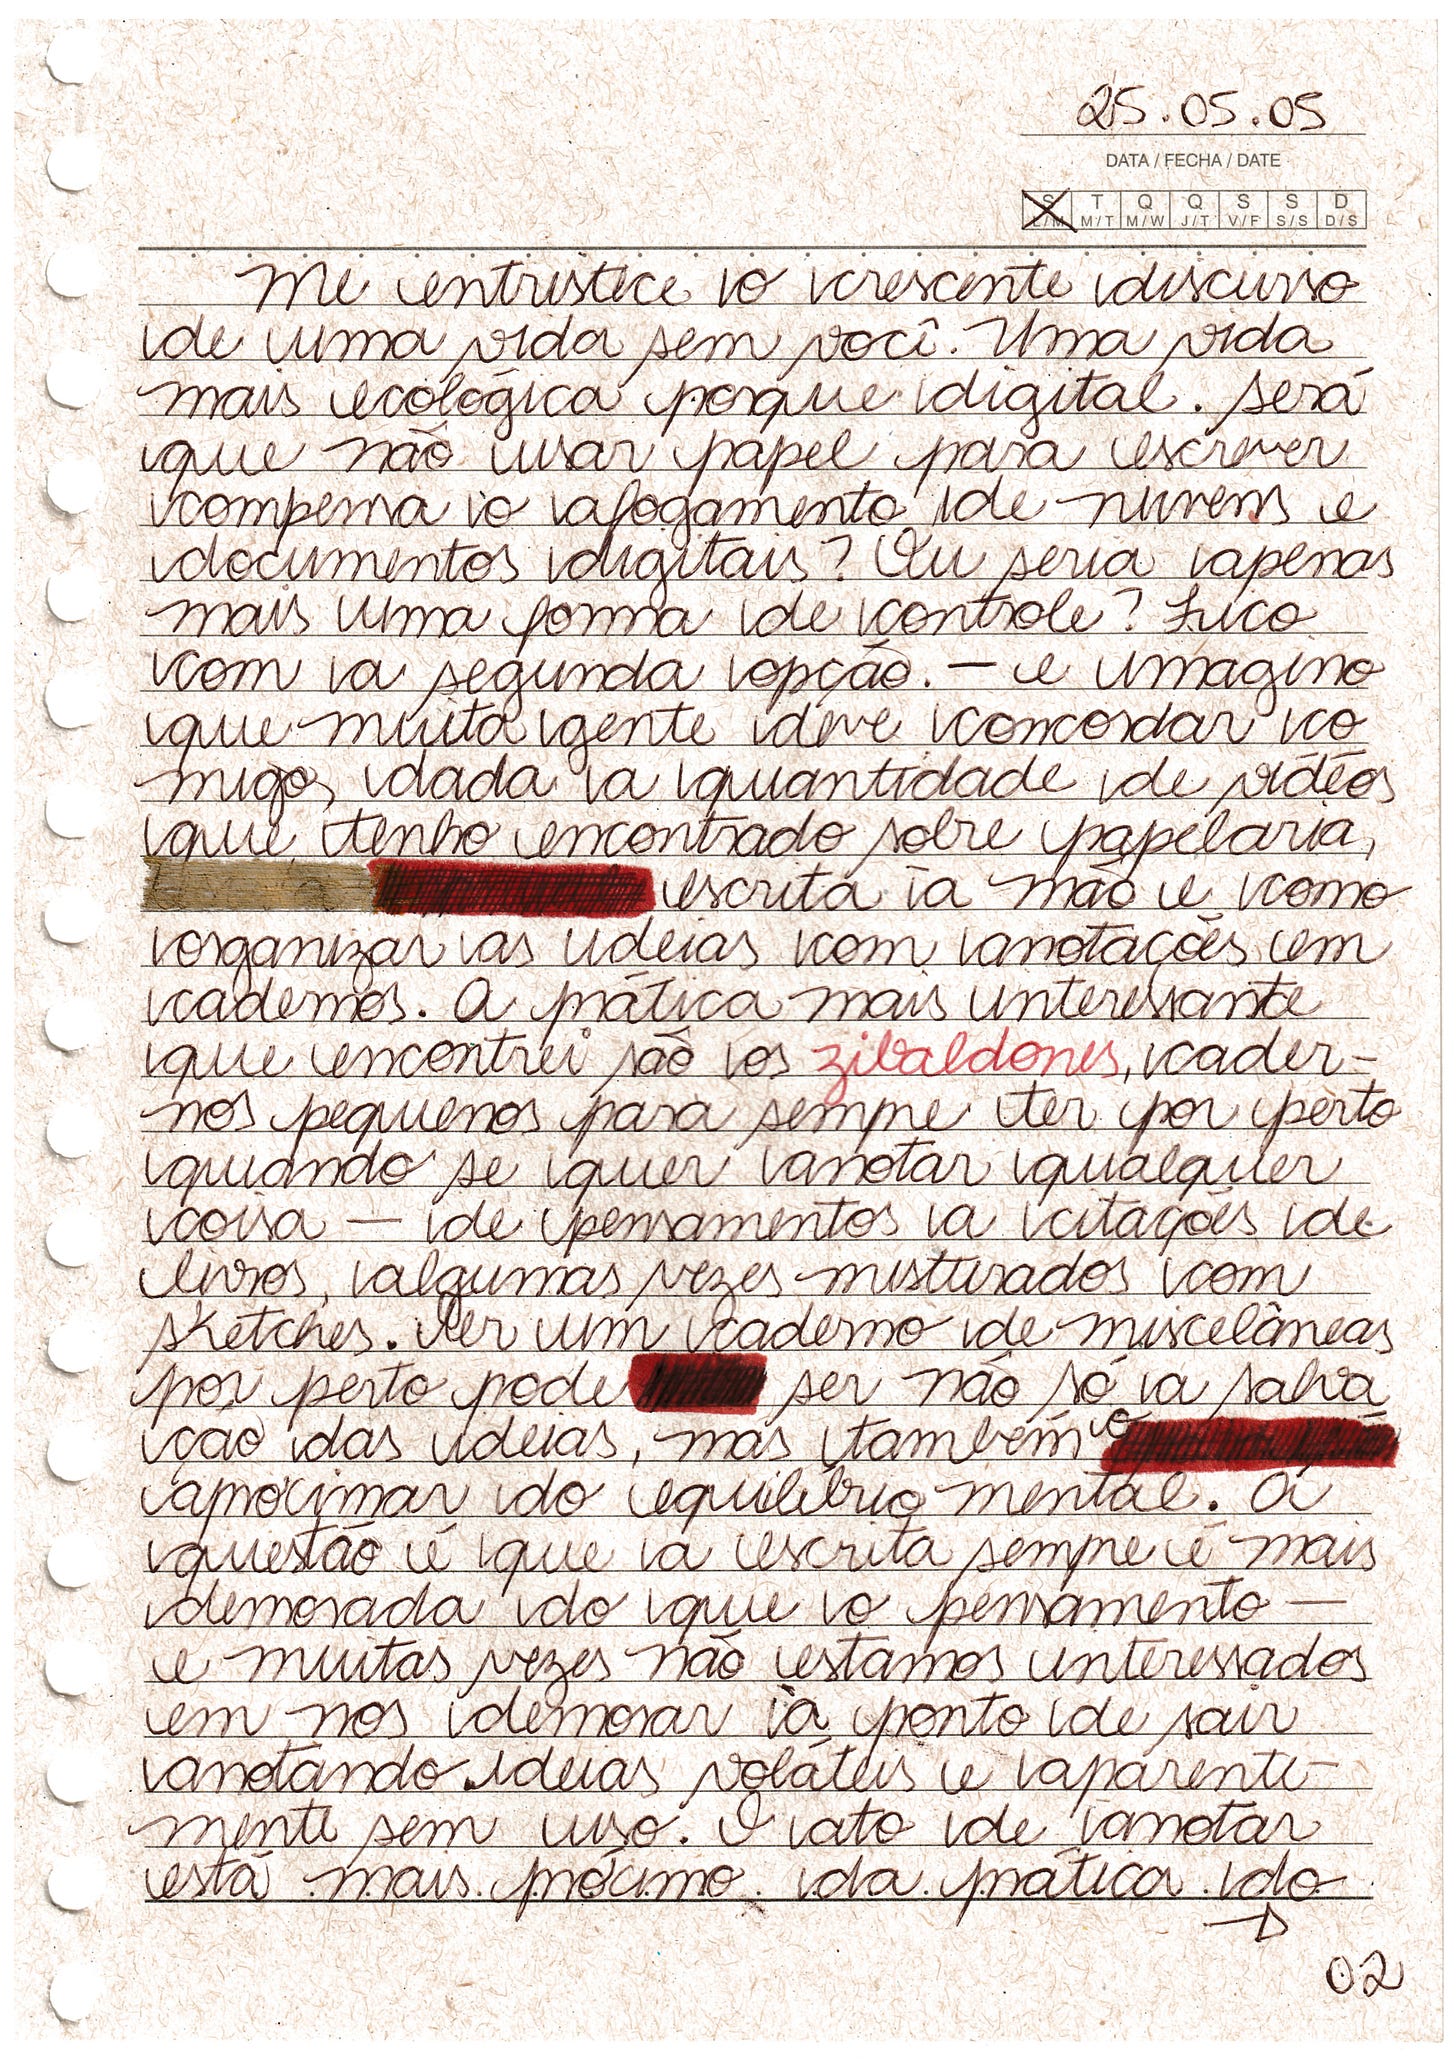 25.05.05
DATA / FECHA / DATE
S T Q Q S S D
L/M M/T M/W J/T V/F S/S D/S
Me entristece o crescente discurso
de uma vida sem você. Uma vida
mais ecológica porque digital. Será
que não usar papel para escrever
compensa o afogamento de nuvens e
documentos digitais? Ou seria apenas
mais uma forma de controle? Fico
com a segunda opção. — e imagino
que muita gente deve concordar co
migo, dada a quantidade de vídeos
que tenho encontrado sobre papelaria,
escrita à mão e como
organizar as ideias com anotações em
cadernos. A prática mais interessante
que encontrei são os zibaldones, cader-
nos pequenos para sempre ter por perto
quando se quer anotar qualquer
coisa — de pensamentos a citações de
livros, algumas vezes misturados com
sketches. Ter um caderno de miscelâneas
por perto pode ser não só a salva
ção das ideias, mas também o
aproximar do equilíbrio mental. A
questão é que a escrita sempre é mais
demorada do que o pensamento —
e muitas vezes não estamos interessados
em nos demorar à ponto de sair
anotando ideias voláteis e aparente-
mente sem uso. O ato de anotar
está mais próximo da prática do
02